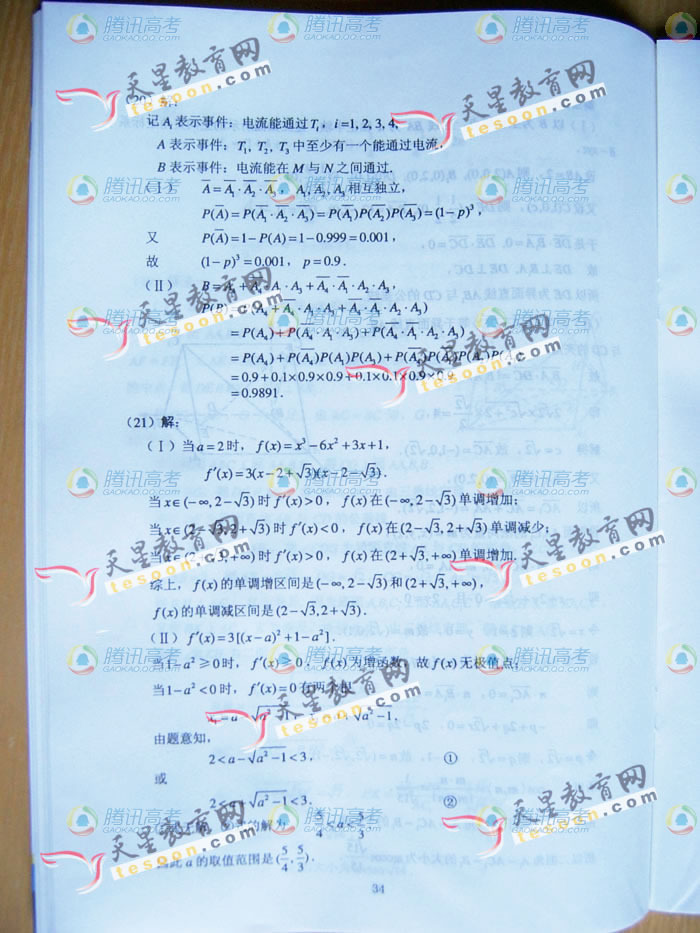 (20) 解:
记 A₁表示事件:电流能通过T₁, i=1, 2, 3, 4,
A 表示事件:T₁, T₂, T₃ 中至少有一个能通过电流,
B 表示事件:电流能在 M 与 N 之间通过.
(Ⅰ) A̅ = A̅₁·A̅₂·A̅₃, A₁, A₂, A₃ 相互独立,
P(A̅) = P(A̅₁·A̅₂·A̅₃) = P(A̅₁)P(A̅₂)P(A̅₃) = (1-p)³,
又 P(A̅) = 1-P(A) = 1-0.999 = 0.001,
故 (1-p)³ = 0.001, p = 0.9.
(Ⅱ) B = A₄ + A̅₄·A₁·A₃ + A̅₄·A̅₁·A₂·A₃,
P(B) = P(A₄ + A̅₄·A₁·A₃ + A̅₄·A̅₁·A₂·A₃)
= P(A₄) + P(A̅₄·A₁·A₃) + P(A̅₄·A̅₁·A₂·A₃)
= P(A₄) + P(A̅₄)P(A₁)P(A₃) + P(A̅₄)P(A̅₁)P(A₂)P(A₃)
= 0.9 + 0.1×0.9×0.9 + 0.1×0.1×0.9×0.9
= 0.9891.
(21) 解:
(Ⅰ) 当 a = 2 时, f(x) = x³-6x²+3x+1,
f′(x) = 3(x-2+√3)(x-2-√3).
当 x∈(-∞, 2-√3) 时 f′(x)>0, f(x) 在 (-∞, 2-√3) 单调增加;
当 x∈(2-√3, 2+√3) 时 f′(x)<0, f(x) 在 (2-√3, 2+√3) 单调减少;
当 x∈(2+√3, +∞) 时 f′(x)>0, f(x) 在 (2+√3, +∞) 单调增加.
综上, f(x) 的单调增区间是 (-∞, 2-√3) 和 (2+√3, +∞),
f(x) 的单调减区间是 (2-√3, 2+√3).
(Ⅱ) f′(x) = 3[(x-a)²+1-a²].
当 1-a²≥0 时, f′(x)≥0, f(x) 为增函数, 故 f(x) 无极值点;
当 1-a²<0 时, f′(x)=0 有两个根
x₁ = a-√a²-1, √a²-1.
由题意知,
2<a-√a²-1<3, ①
或
2<a+√a²-1<3. ②
的解为 5/4<a<5/3.
因此 a 的取值范围是 (5/4, 5/3).
34
腾讯高考
GAOKAO.QQ.COM
天星教育网
tesoon.com